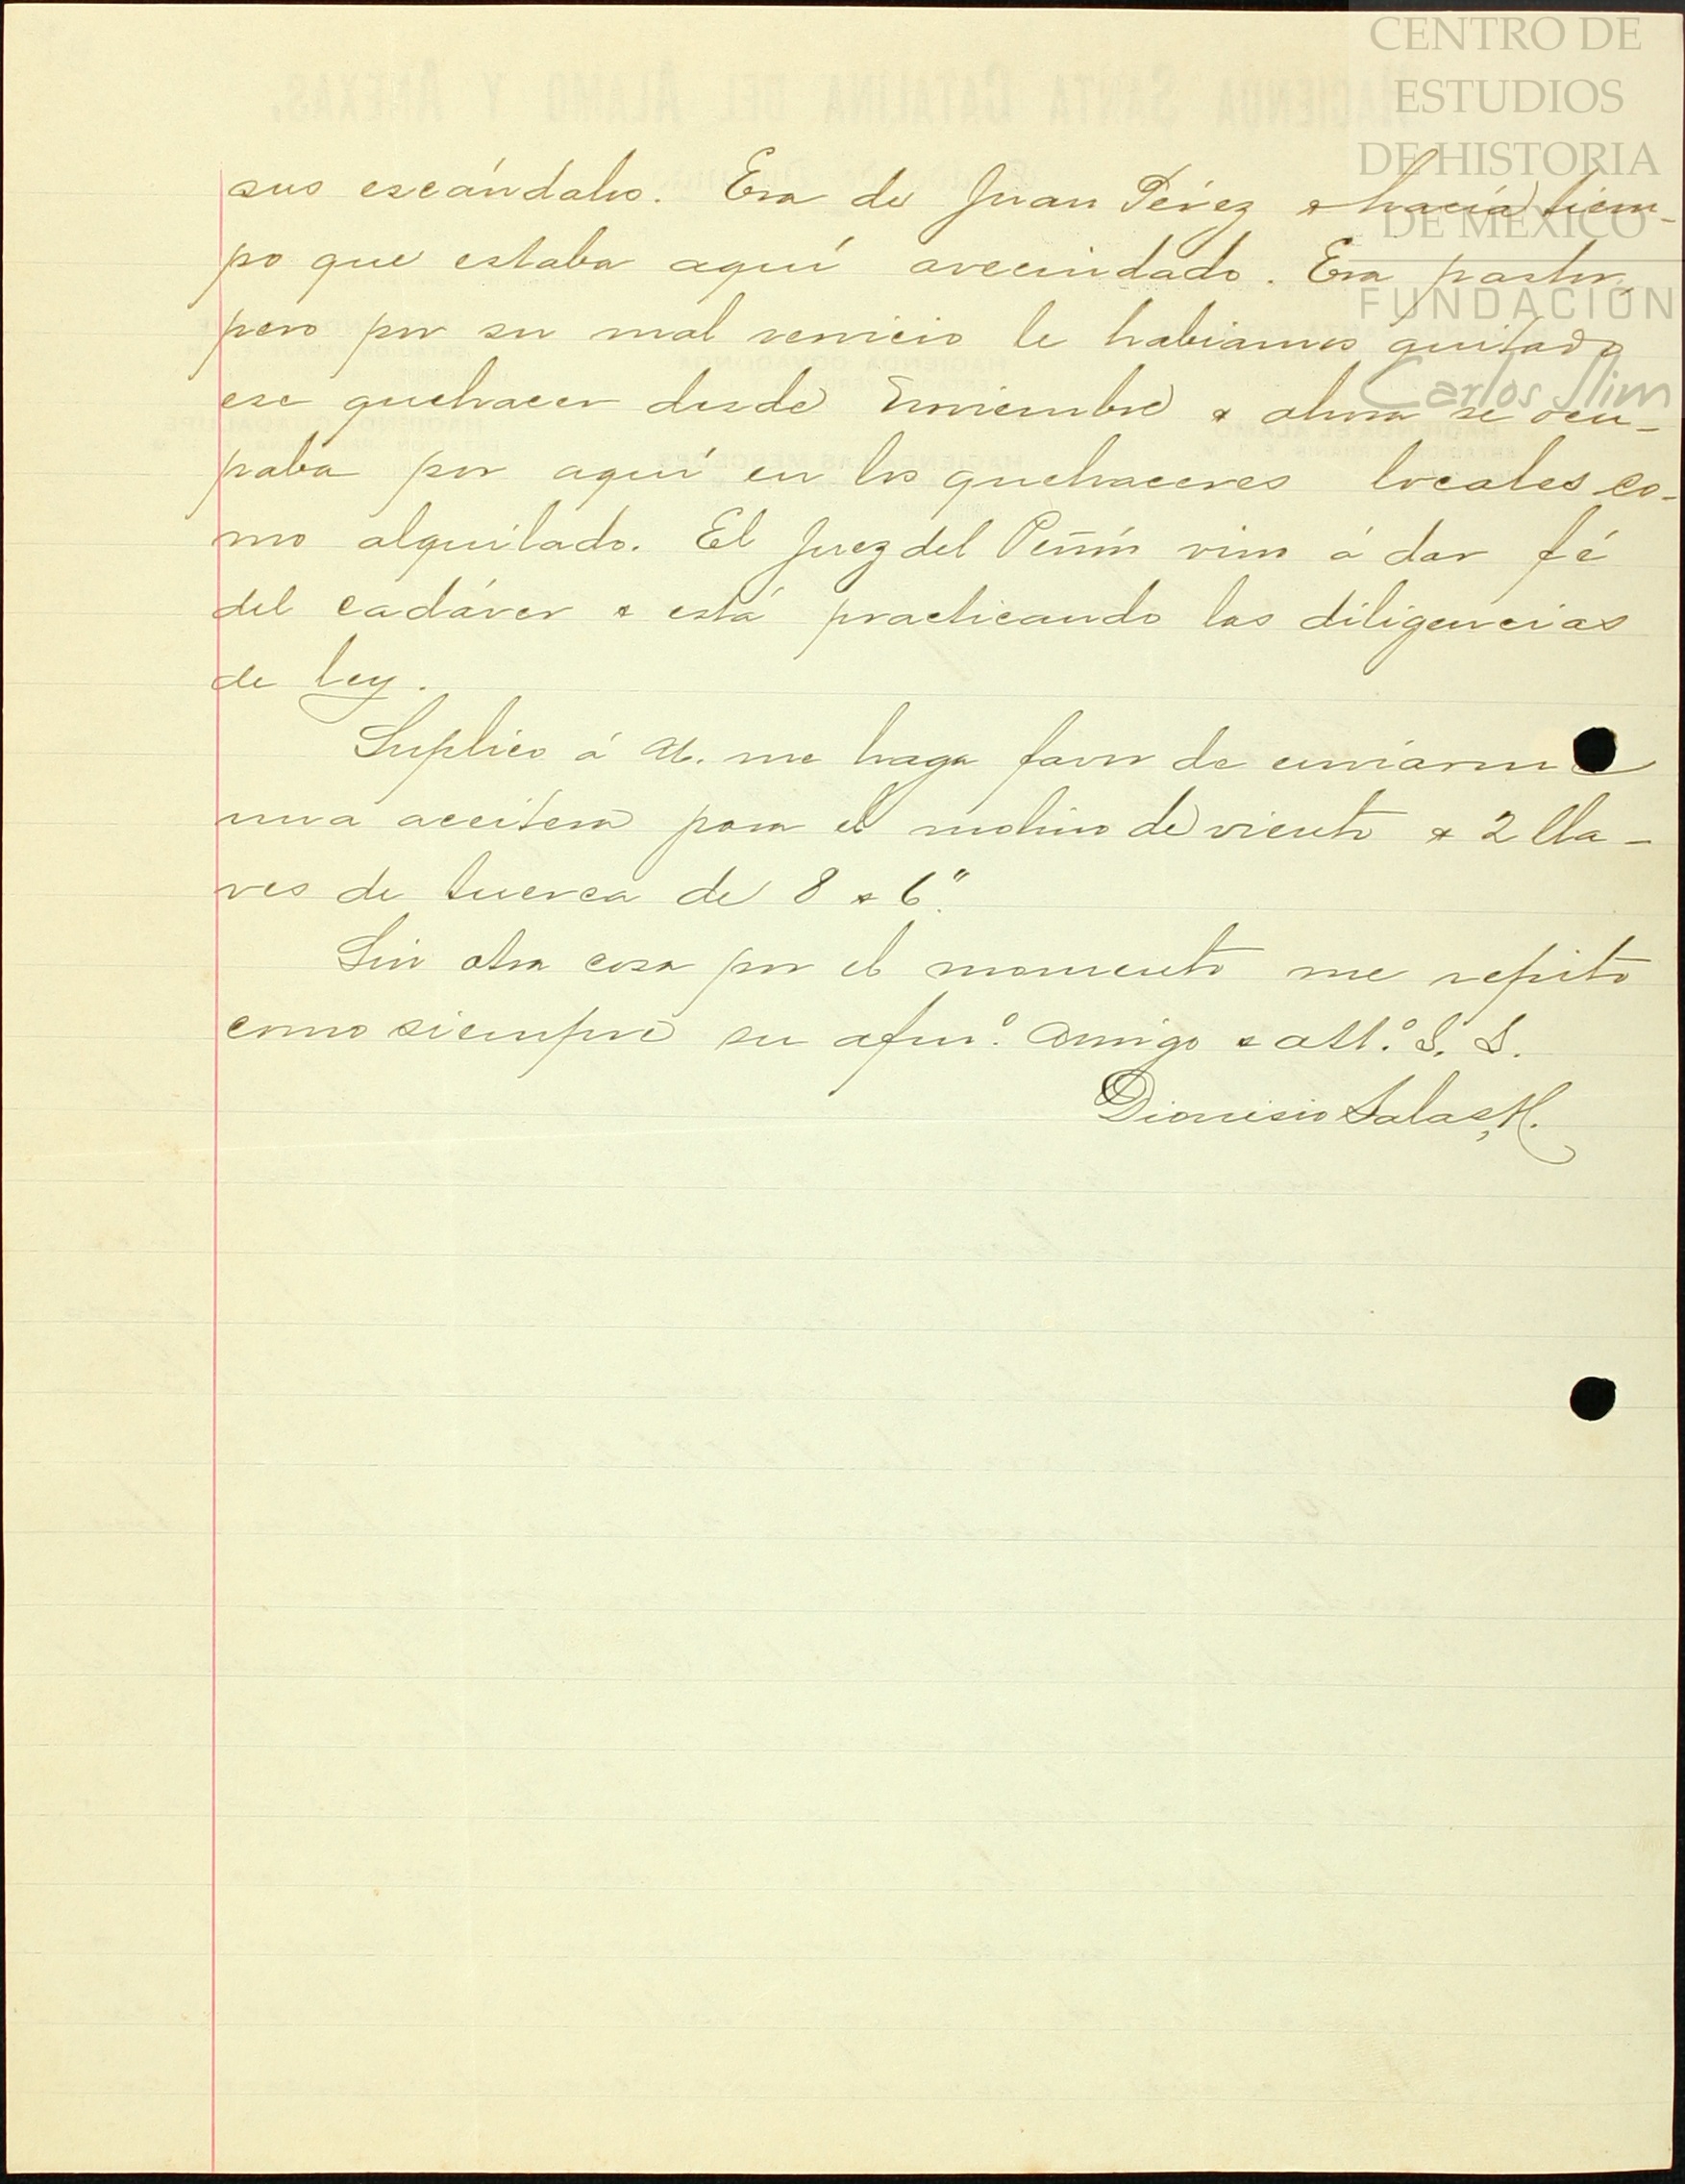 CENTRO DE
ESTUDIOS
DE HISTORIA
DE MÉXICO
FUNDACIÓN
Carlos Slim
HACIENDA SANTA CATALINA DEL ALAMO Y ANEXAS.
sus escándalos. Era de Juan Pérez & hacía tiem-
po que estaba aquí avecindado. Era pastor,
pero por su mal servicio le habiamos quitado
ese quehacer desde Noviembre & ahora se ocu-
paba por aquí en los quehaceres locales co-
mo alquilado. El Juez del Peñón vino á dar fé
del cadáver & está practicando las diligencias
de ley.
Suplico á U. me haga favor de enviarme
una aceitera para el molino de viento & 2 lla-
ves de tuerca de 8 & 6".
Sin otra cosa por el momento me repito
como siempre su afmo. amigo & atto. S. S.
Dionisio Salas, H.